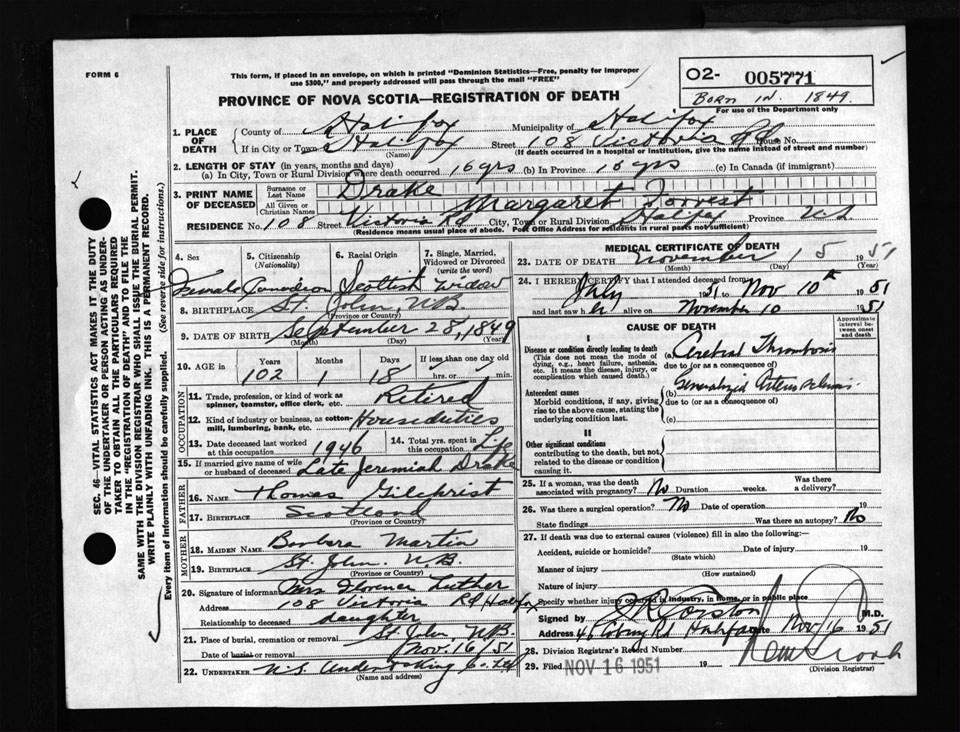 FORM 6
This form, if placed in an envelope, on which is printed "Dominion Statistics—Free, penalty for improper
use $300," and properly addressed will pass through the mail "FREE"
O2- 005771
BORN IN 1849.
For use of the Department only
PROVINCE OF NOVA SCOTIA—REGISTRATION OF DEATH
1. PLACE OF DEATH
County of Halifax Municipality of Halifax
If in City or Town Halifax Street 108 Victoria Rd House No.
(Name) (If death occurred in a hospital or institution, give the name instead of street and number)
2. LENGTH OF STAY (in years, months and days)
(a) In City, Town or Rural Division where death occurred 10 yrs (b) In Province 10 yrs (c) In Canada (if immigrant)
3. PRINT NAME OF DECEASED
Surname or Last Name Drake
All Given or Christian Names Margaret Forrest
RESIDENCE No. 108 Street Victoria Rd City, Town or Rural Division Halifax Province N.S.
(Residence means usual place of abode. Post Office Address for residents in rural parts not sufficient)
4. Sex 5. Citizenship (Nationality) 6. Racial Origin 7. Single, Married, Widowed or Divorced (write the word)
Female Canadian Scottish Widow
8. BIRTHPLACE St. John, N.B.
(Province or Country)
9. DATE OF BIRTH September 28, 1849
(Month) (Day) (Year)
10. AGE in Years Months Days If less than one day old
102 1 18 hrs. or min.
OCCUPATION
11. Trade, profession, or kind of work as spinner, teamster, office clerk, etc. Retired
12. Kind of industry or business, as cotton-mill, lumbering, bank, etc. Houseduties
13. Date deceased last worked at this occupation 1946 14. Total yrs. spent in Life
15. If married give name of wife or husband of deceased Late Jeremiah Drake
FATHER
16. NAME Thomas Gilchrist
17. BIRTHPLACE Scotland
(Province or Country)
MOTHER
18. MAIDEN NAME Barbara Martin
19. BIRTHPLACE St. John. N.B.
(Province or Country)
20. Signature of informant Mrs Florence Luther
Address 108 Victoria Rd Halifax
Relationship to deceased daughter
21. Place of burial, cremation or removal St. John, N.B.
Date of burial or removal Nov. 16/51
22. UNDERTAKER N.S. Undertaking Co. Ltd
(Name and address)
MEDICAL CERTIFICATE OF DEATH
23. DATE OF DEATH November 15 1951
(Month) (Day) (Year)
24. I HEREBY CERTIFY that I attended deceased from
July 1951 Nov 10th 1951
and last saw h alive on November 10 1951
CAUSE OF DEATH
Approximate interval between onset and death
I
Disease or condition directly leading to death (a) Cerebral Thrombosis
(This does not mean the mode of dying, e.g., heart failure, asthenia, etc. It means the disease, injury, or complication which caused death.)
due to (or as a consequence of)
Antecedent causes (b) Generalized Arteriosclerosis
Morbid conditions, if any, giving rise to the above cause, stating the underlying condition last.
due to (or as a consequence of)
(c)
II
Other significant conditions contributing to the death, but not related to the disease or condition causing it.
25. If a woman, was the death associated with pregnancy? No Duration weeks. Was there a delivery?
26. Was there a surgical operation? No Date of operation 19
State findings Was there an autopsy? No
27. If death was due to external causes (violence) fill in also the following:—
Accident, suicide or homicide? Date of injury 19
(State which)
Manner of injury
(How sustained)
Nature of injury
Specify whether injury occurred in industry, in home, or in public place
Signed by M.D.
Address Halifax Date Nov 16 1951
28. Division Registrar's Record Number
29. Filed NOV 16 1951 19
(Division Registrar)
SEC. 46—VITAL STATISTICS ACT MAKES IT THE DUTY
OF THE UNDERTAKER OR PERSON ACTING AS UNDER-
TAKER TO OBTAIN ALL THE PARTICULARS REQUIRED
IN THE "REGISTRATION OF DEATH" AND TO FILE THE
SAME WITH THE DIVISION REGISTRAR WHO SHALL ISSUE THE BURIAL PERMIT.
WRITE PLAINLY WITH UNFADING INK. THIS IS A PERMANENT RECORD.
Every item of information should be carefully supplied. (See reverse side for instructions.)